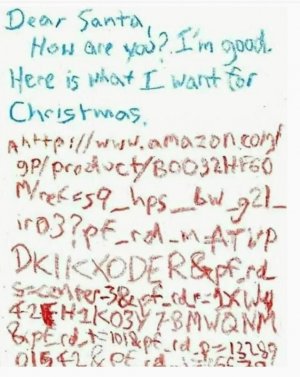 Dear Santa,
How are you? I'm good.
Here is what I want for
Christmas.
http://www.amazon.com/
gp/product/B0032HF60
M/ref=s9_hps_bw_g21_
ir03?pf_rd_m=ATVP
DKIKX0DER&pf_rd_
s=center-3&pf_rd_r=1XW4
42EH1K03Y78MWQNM
&pf_rd_t=101&pf_rd_p=13289
01542&pf_rd_